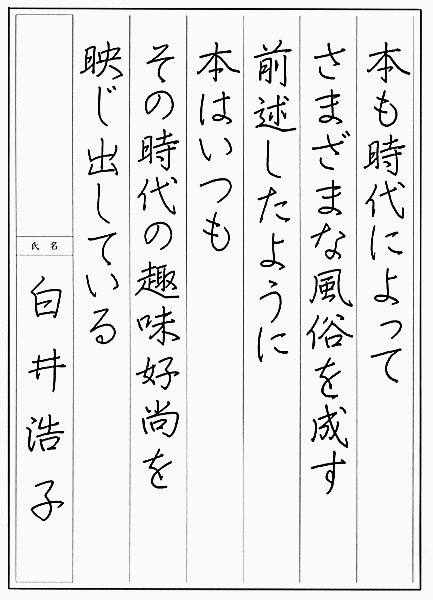 本も時代によって
さまざまな風俗を成す
前述したように
本はいつも
その時代の趣味好尚を
映じ出している
氏名
白井浩子